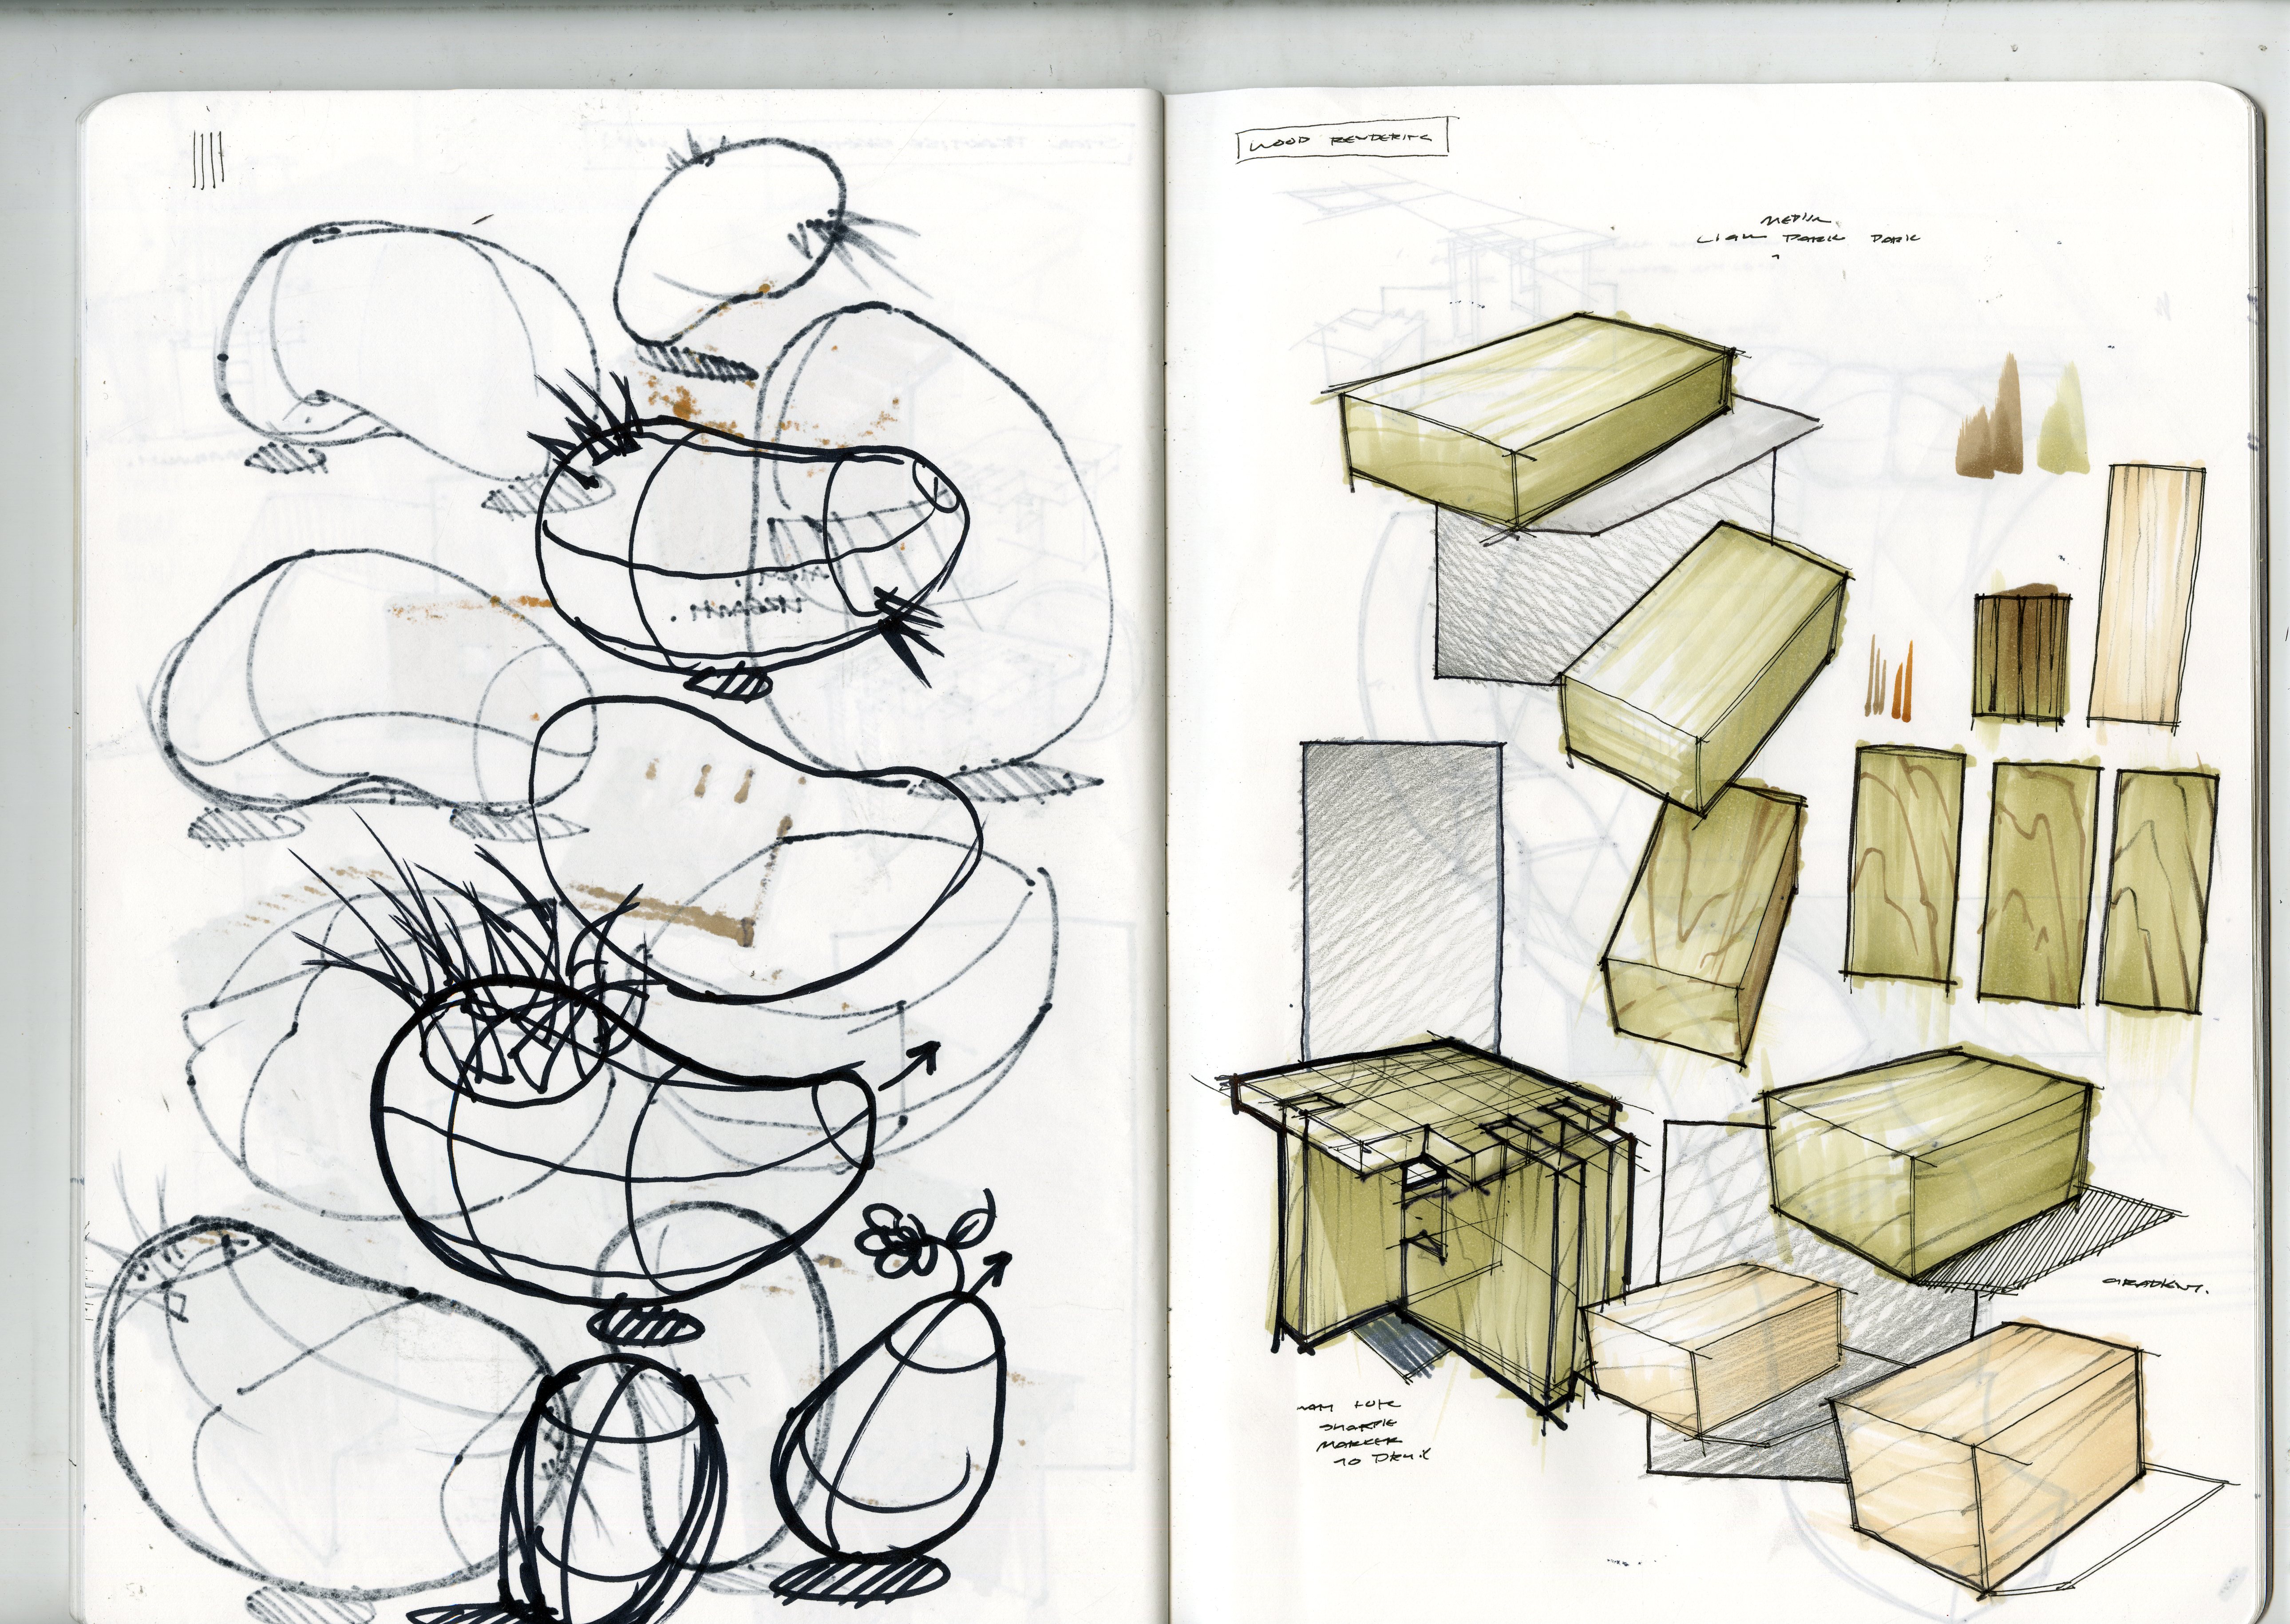 WOOD RENDERING
MEDIUM
LIGHT DARK DARK
GRADIENT.
SHARPIE
MARKER
TO